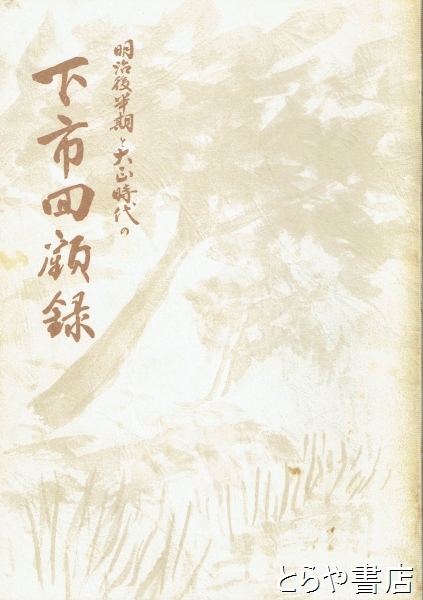 明治後半期と大正時代の
下市回顧録
とらや書店